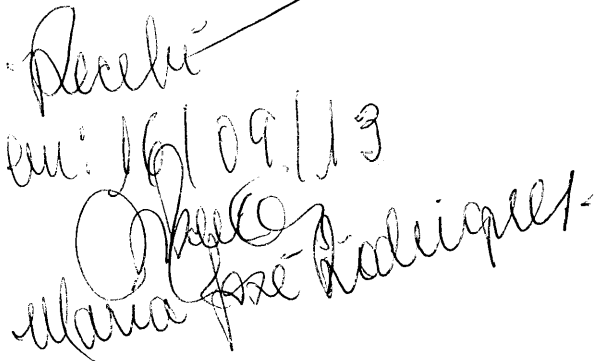 Recebi
em: 16/09/13
Maria José Rodrigues.